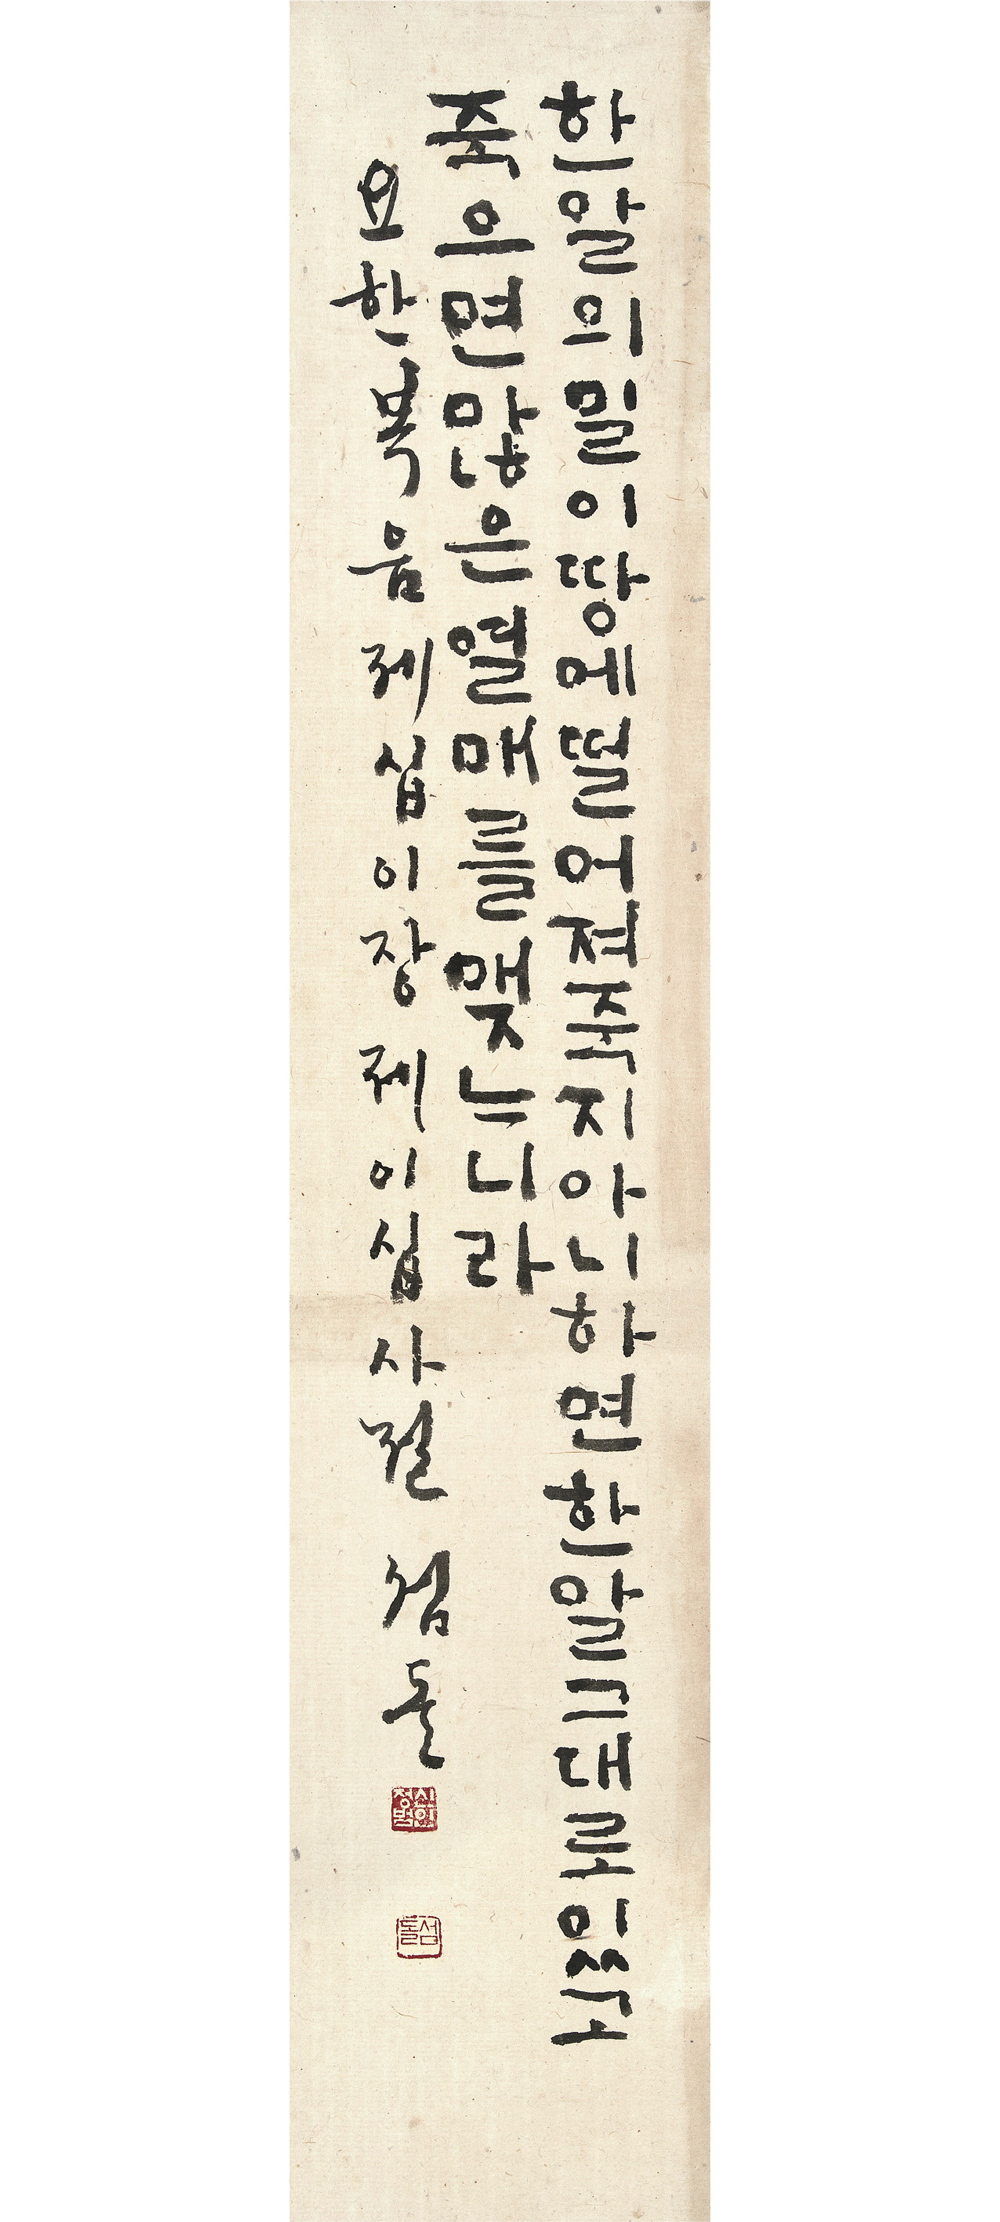 한알의밀이땅에떨어져죽지아니하면한알그대로있고
죽으면많은열매를맺느니라
요한복음 제십이장 제이십사절 섬돌
섬돌